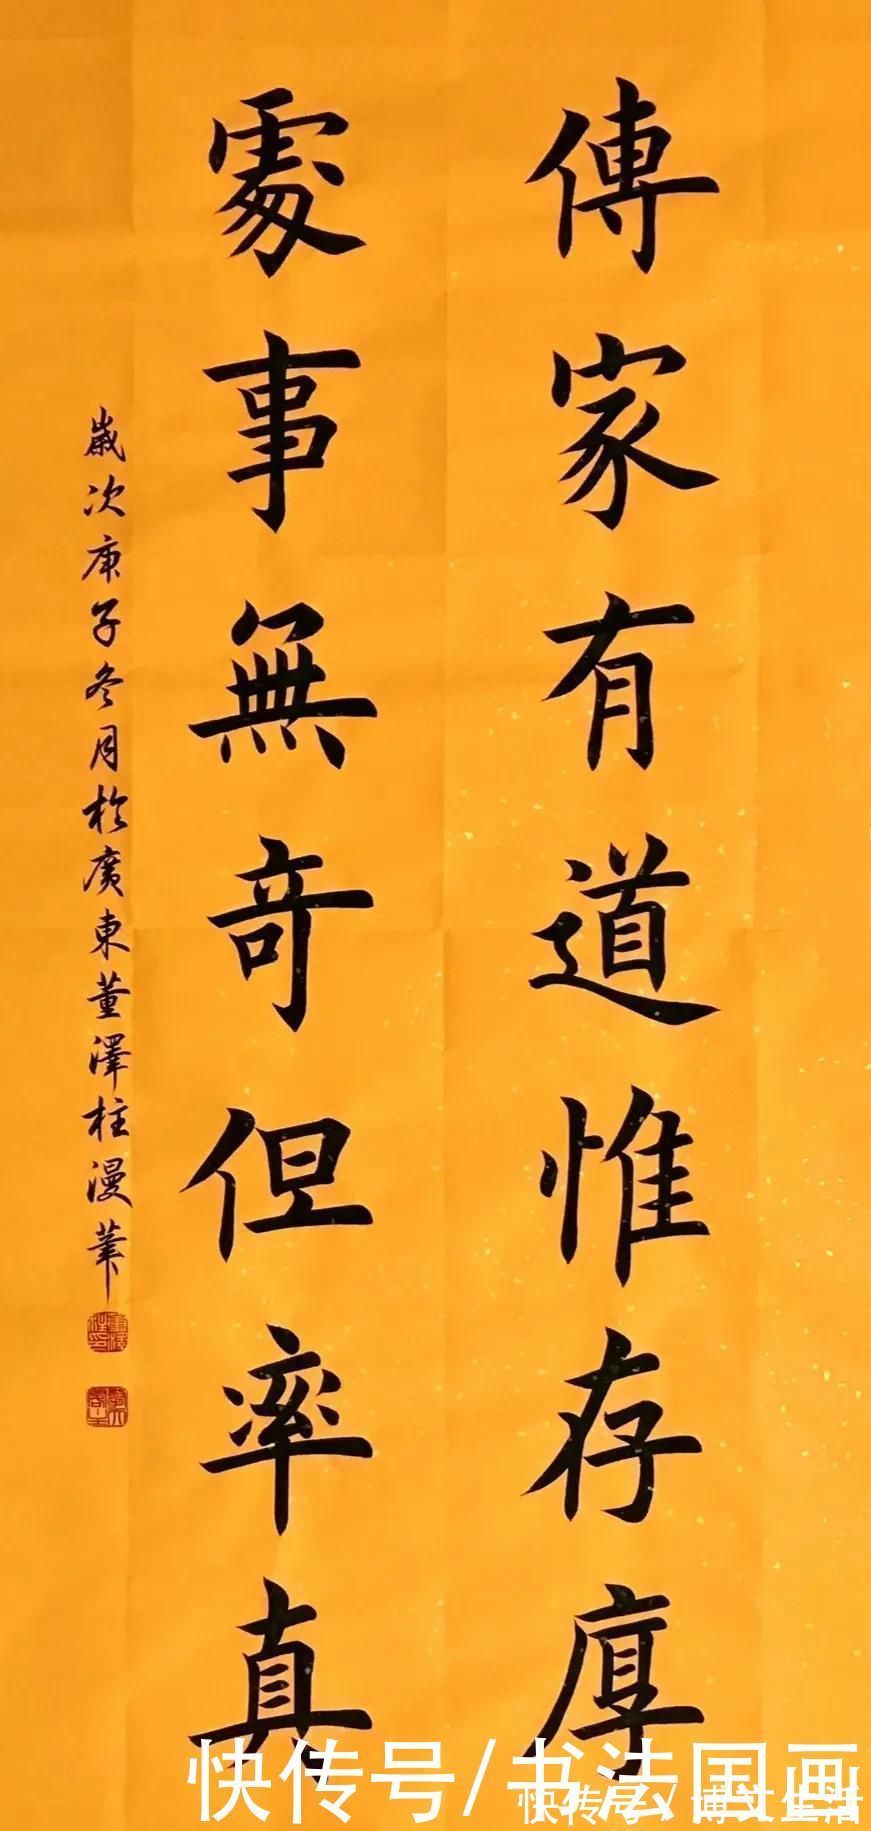 傳家有道惟存厚
處事無奇但率真
歲次庚子冬月於廣東董澤柱漫筆
快传号/书法国画
快传号/博文生活